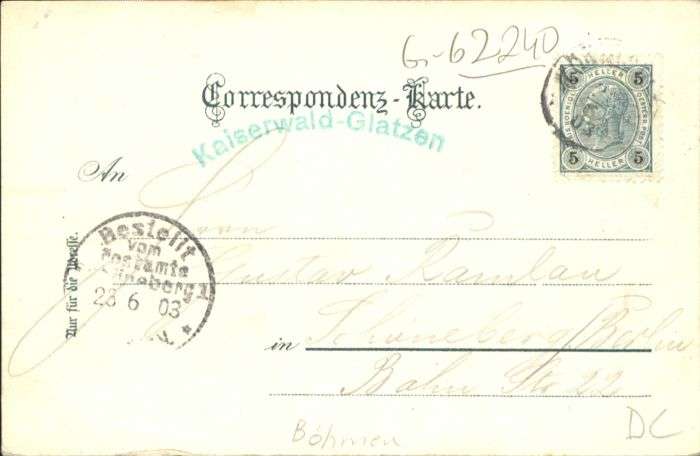 G-62240
Correspondenz-Karte.
Kaiserwald-Glatzen
5 HELLER 5
5 HELLER 5
An
Herrn
Gustav Ramlau
in Schöneberg/Berlin
Bahn Str 22
Nur für die Adresse.
Bestellt
vom
Postamte
Schöneberg 1
28 6 03
Böhmen
DC